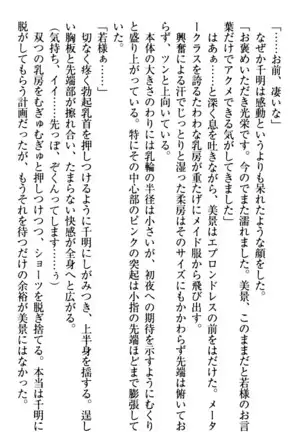 「……千明、凄いな」
なぜか千明は感動というよりも呆れたような顔をした。
「お褒めいただき光栄です。今のでまた濡れました。美景、このままだと若様のお言
葉だけでアクメできる気がしてきました」
はあぁ……と深く息を吐きながら、美景はエプロンドレスの前をはだけた。メータ
ークラスを誇るたわわな乳房が重たげにメイド服から飛び出す。
興奮による汗でじっとりと湿った柔房はそのサイズにもかかわらず先端は俯いてお
らず、ツンと上向いている。
本体の大きさのわりに乳輪の半径は小さいが、初夜への期待を示すようにむくり
と盛り上がっている。特にその中心部のピンクの突起は小指の先端ほどまで膨張して
いた。
「若様ぁ……」
切なく疼く勃起乳首を押しつけるように千明にしがみつき、上半身を揺する。逞し
い胸板と先端部が擦れ合い、たまらない快感が全身へと広がる。
（気持ち、イイ……先っぽ、ぞくんってします……ぅ）
双つの乳房をむぎゅむぎゅと押しつけつつ、ショーツを脱ぎ捨てる。本当は千明に
脱がしてもらう計画だったが、もうそれを待つだけの余裕が美景にはなかった。